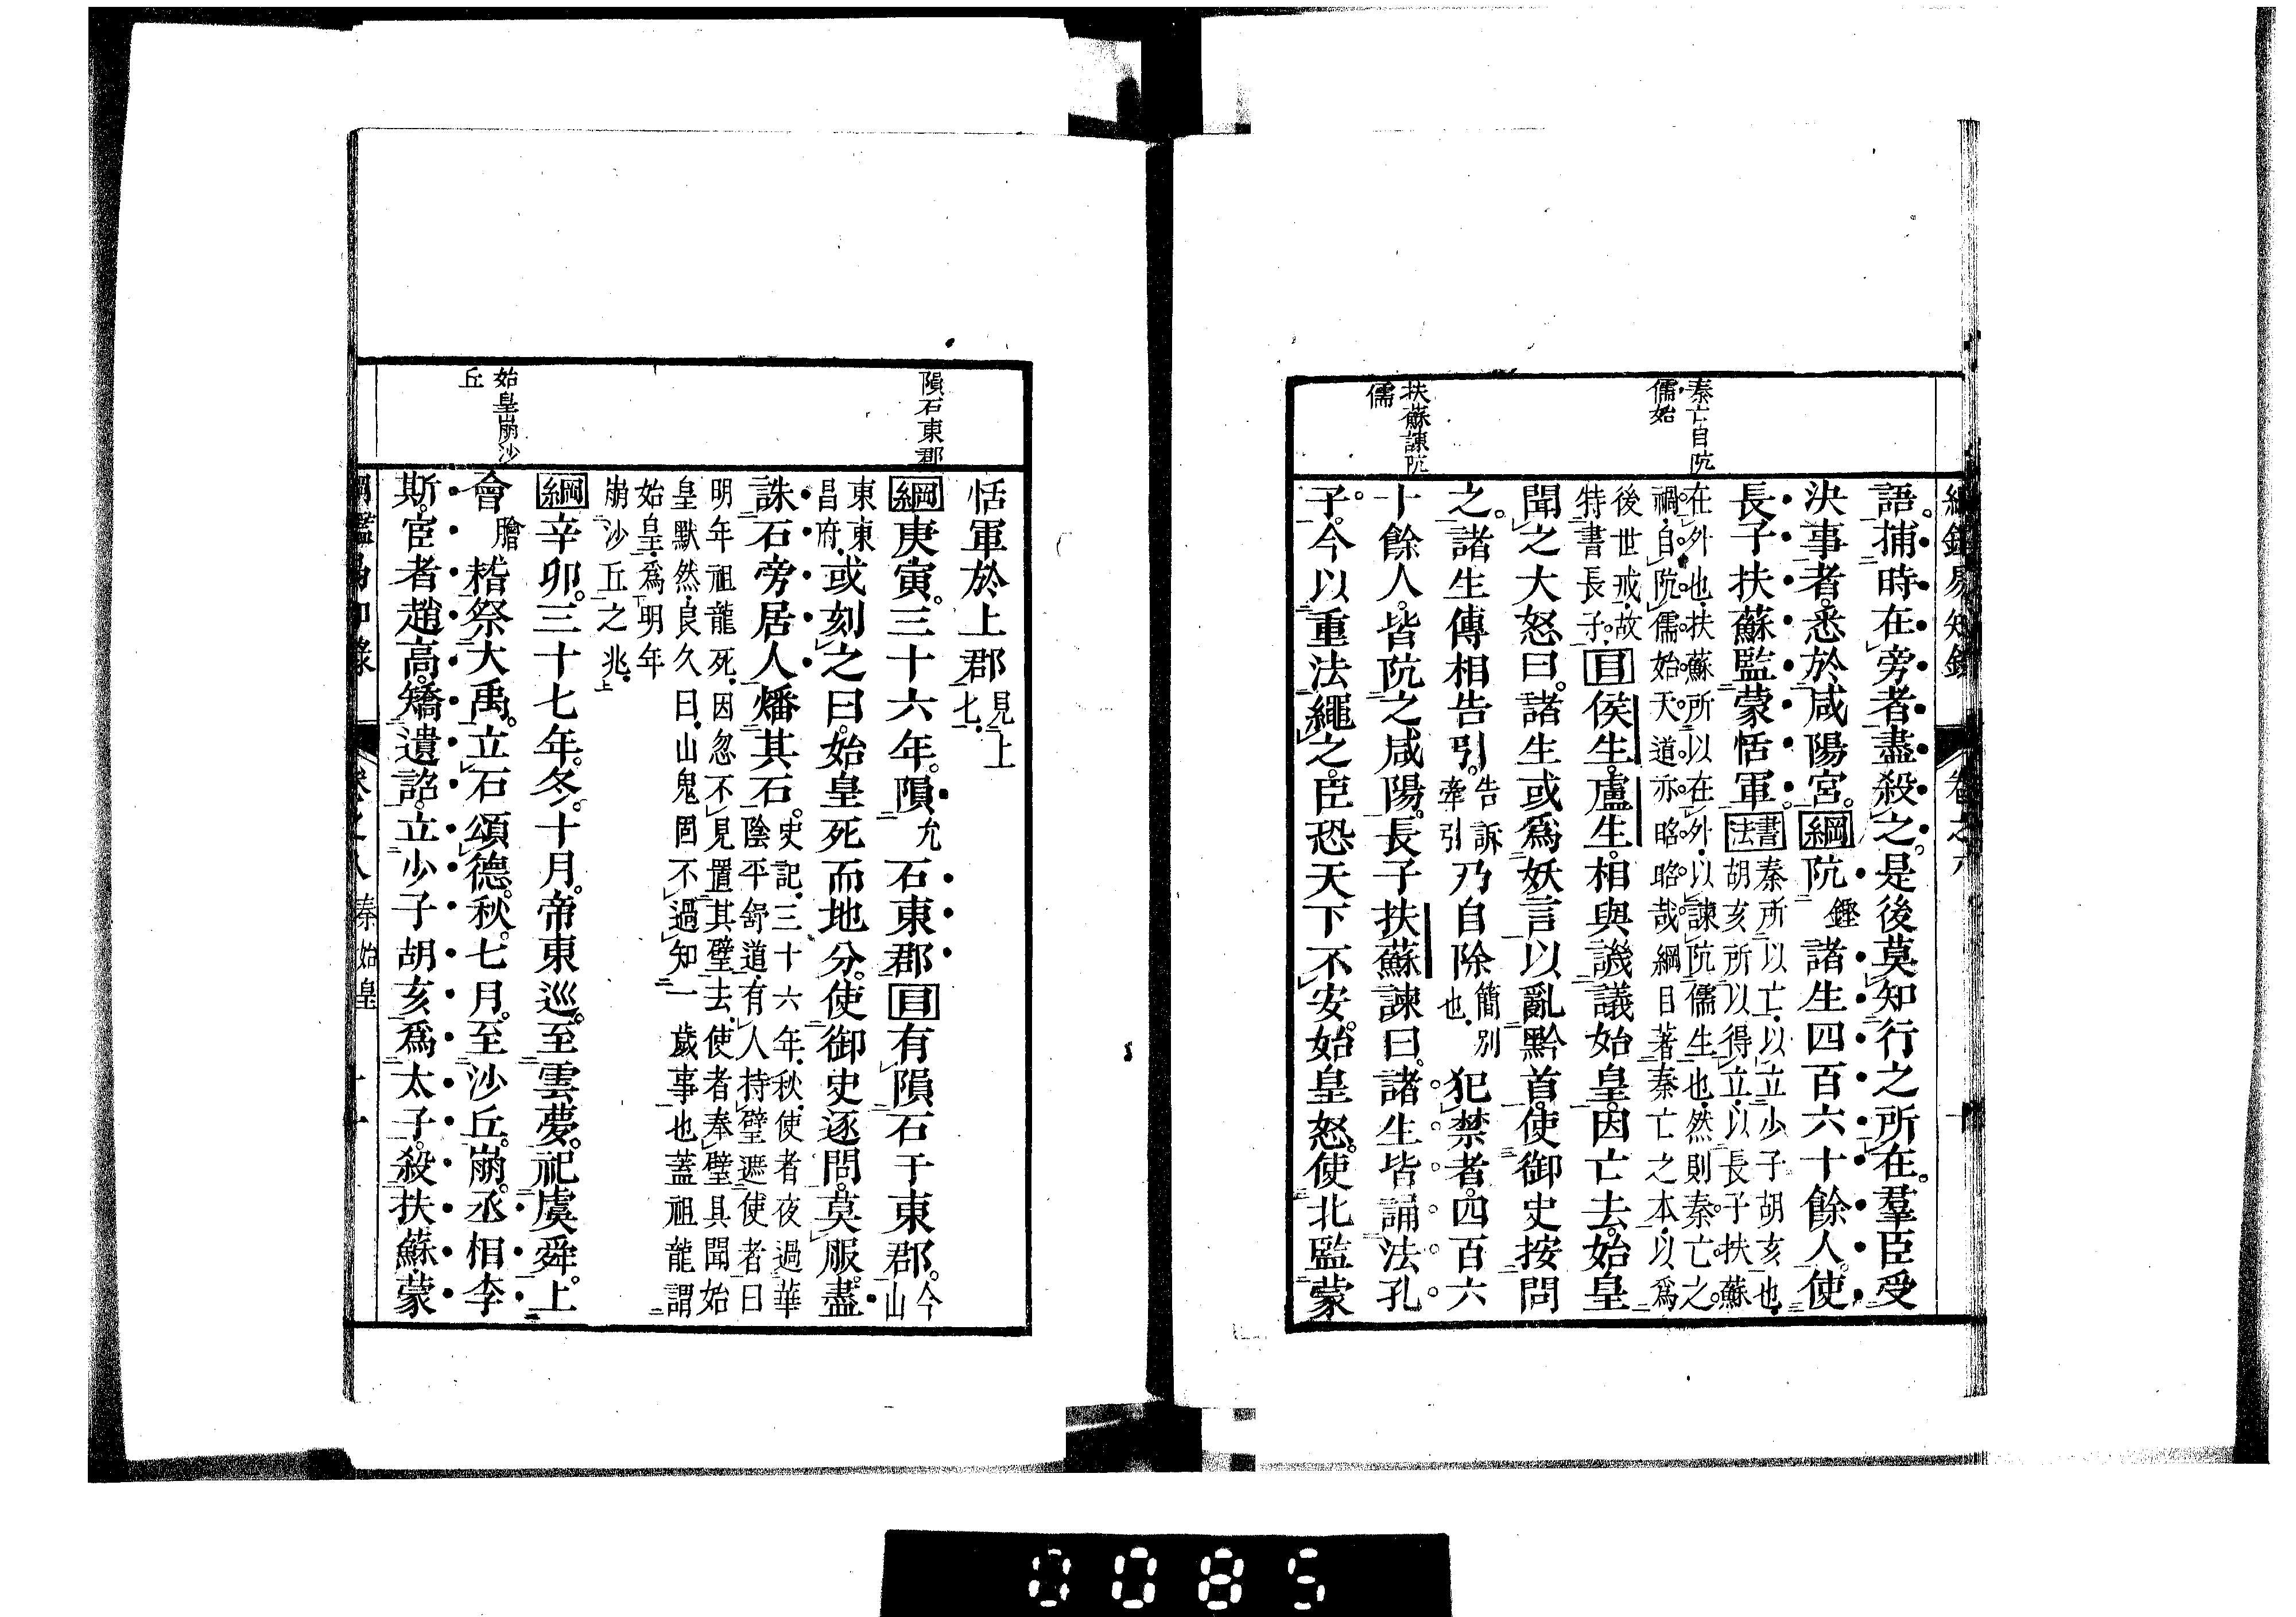 秦亡自阬
儒始
扶蘇諫阬
儒
語。捕時在旁者。盡殺之。是後莫知行之所在。羣臣受
決事者。悉於咸陽宮。綱阬鏗諸生四百六十餘人。使
長子扶蘇監蒙恬軍。書法秦所以亡。以立少子胡亥也。
胡亥所以得立。以長子扶蘇
在外也。扶蘇所以在外。以諫阬儒生也。然則秦亡之
禍。自阬儒始。天道亦昭昭哉。綱目著秦亡之本。以爲
後世戒。故
特書長子。目侯生。盧生。相與譏議始皇。因亡去。始皇
聞之大怒曰。諸生或爲妖言。以亂黔首。使御史按問
之。諸生傳相告引。告訴牽引乃自除簡別也。犯禁者。四百六
十餘人。皆阬之咸陽。長子扶蘇諫曰。諸生皆誦法孔
子。今以重法繩之。臣恐天下不安。始皇怒。使北監蒙
隕石東郡
始皇崩沙
丘
恬軍於上郡見上七。
綱庚寅。三十六年。隕允石東郡。目有隕石于東郡。今山
東東昌府。或刻之曰。始皇死而地分。使御史逐問。莫服。盡
誅石旁居人。燔其石。史記。三十六年。秋。使者夜過華
陰平舒道。有人持璧遮使者曰
明年祖龍死。因忽不見。置其璧去。使者奉璧具聞。始
皇默然。良久曰。山鬼固不過知一歲事也。蓋祖龍謂
始皇。爲明年
崩沙丘之兆。
綱辛卯。三十七年。冬。十月。帝東巡。至雲夢。祀虞舜。上
會膾稽。祭大禹。立石頌德。秋。七月。至沙丘。崩。丞相李
斯。宦者趙高。矯遺詔。立少子胡亥爲太子。殺扶蘇。蒙
秦始皇
0085